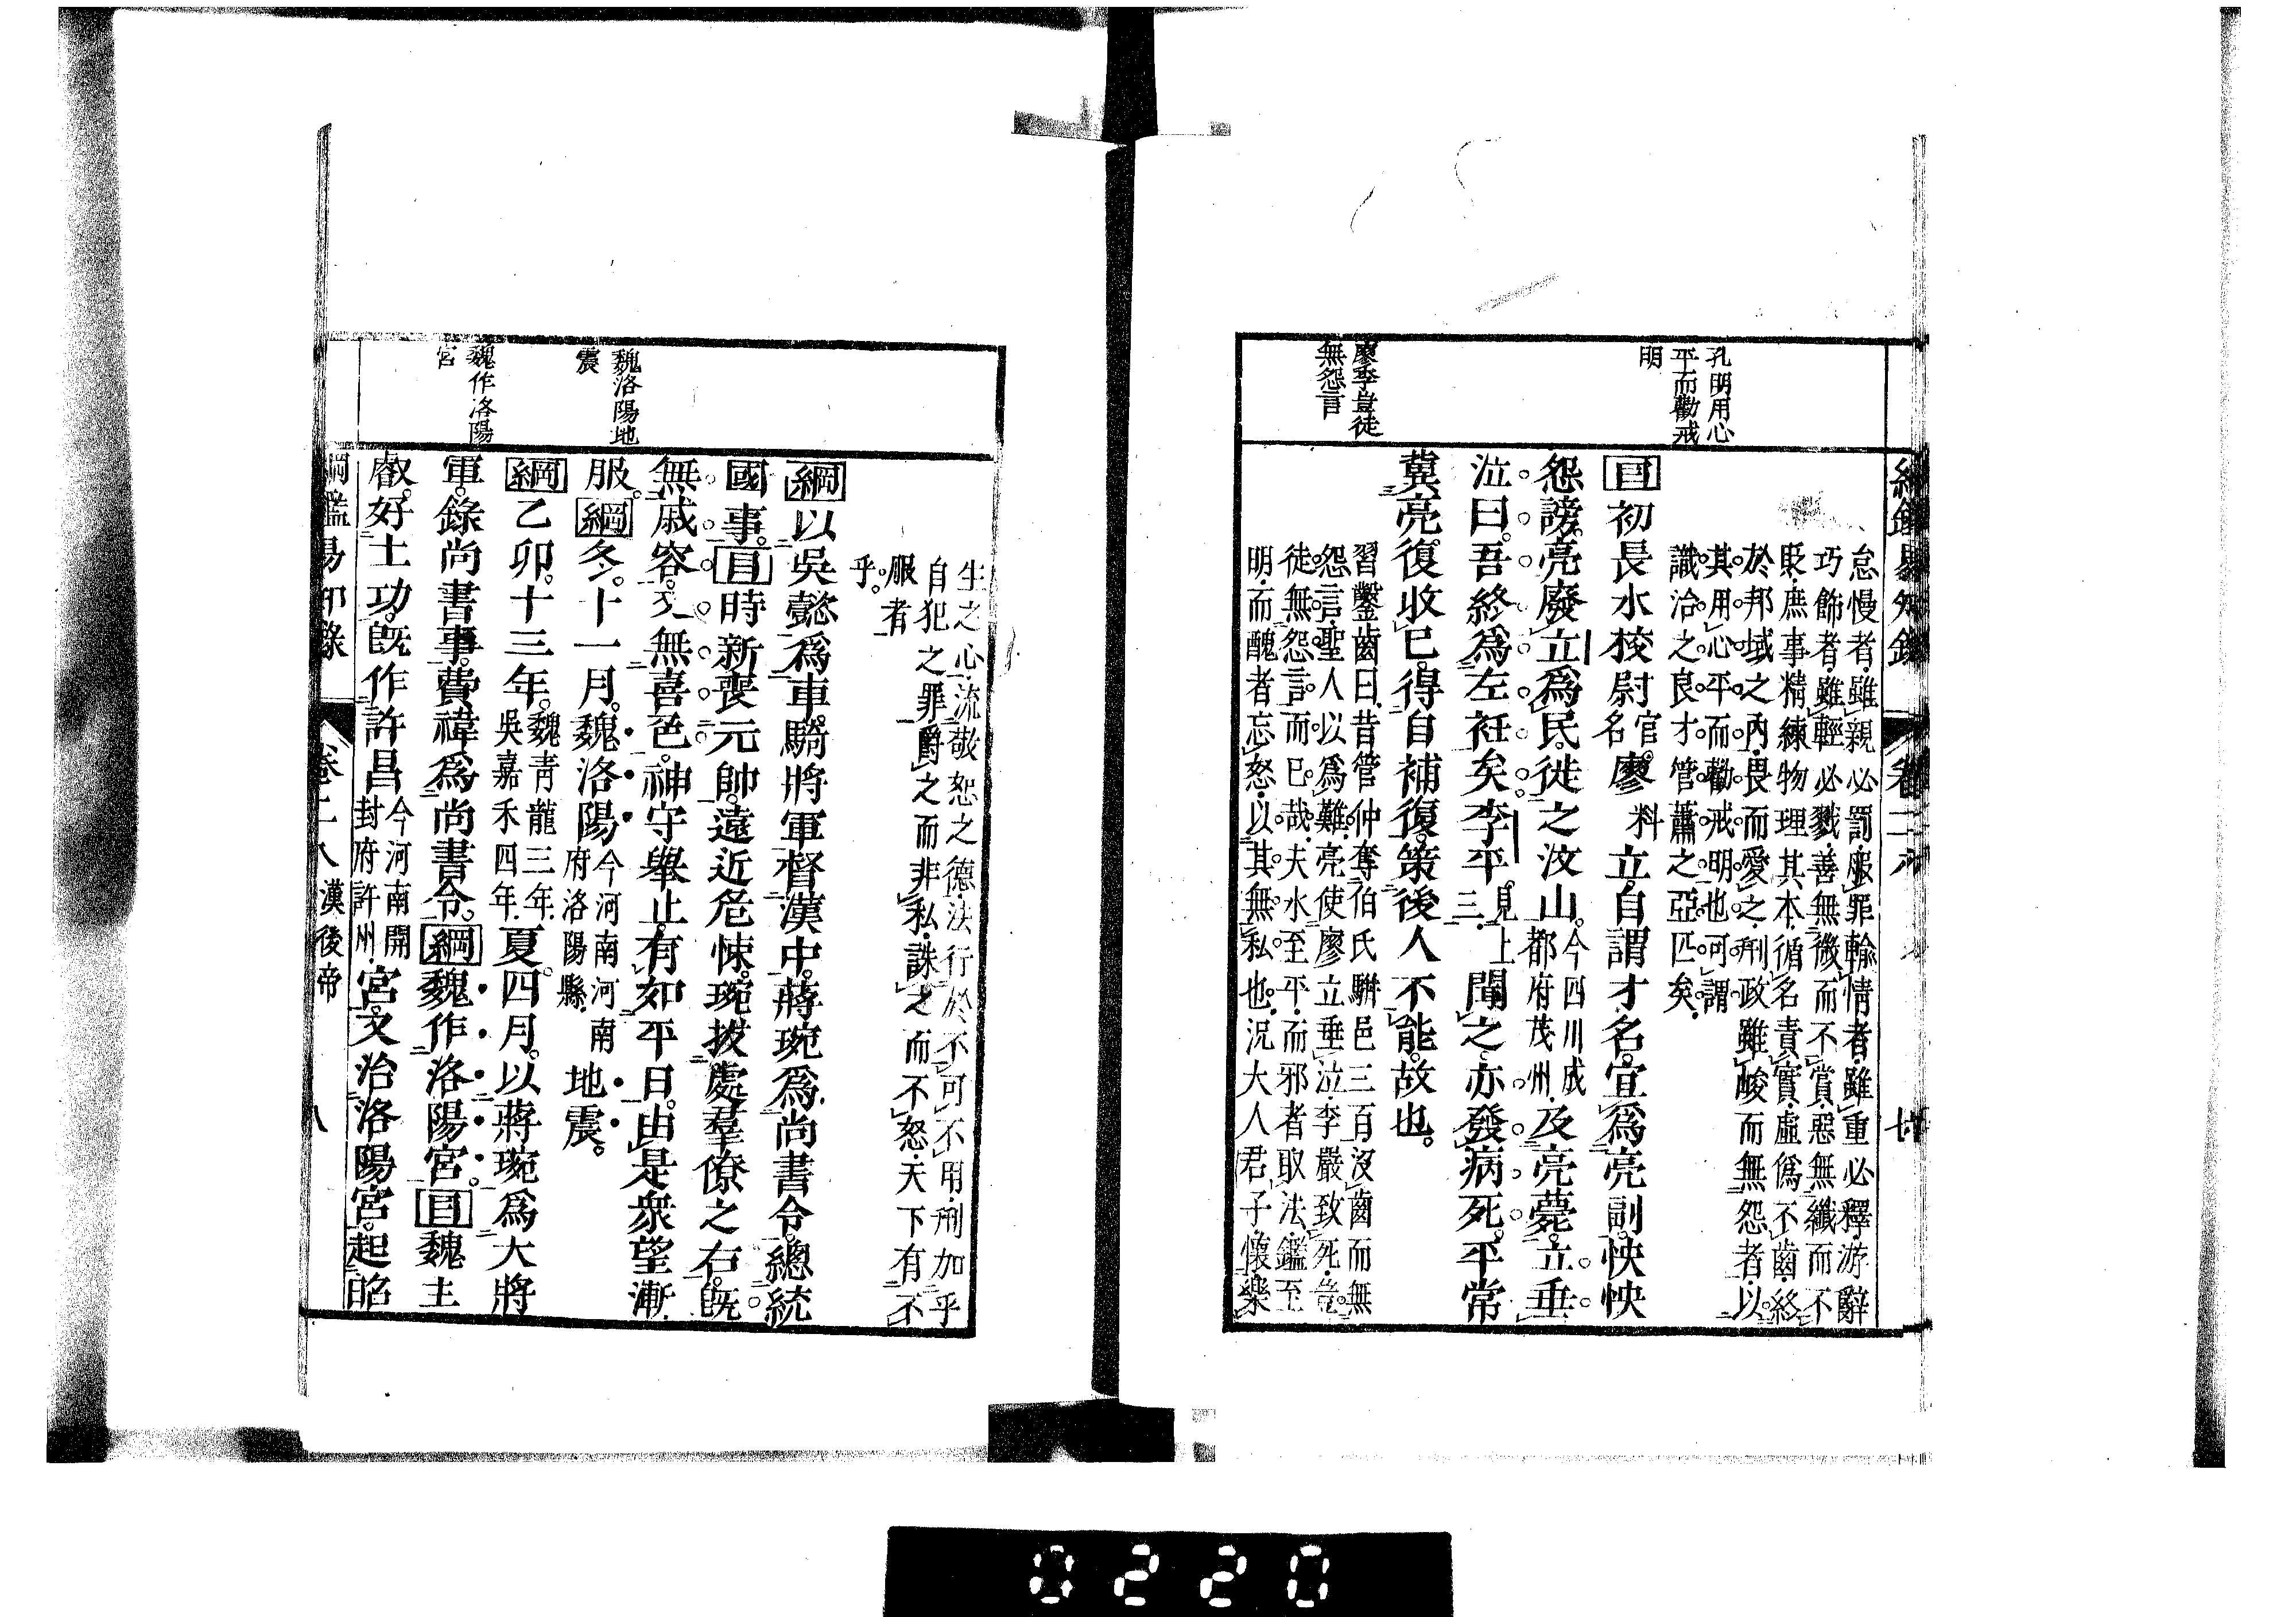 綱鑑易知錄
卷二八
孔明用心
平而勸戒
明
廖李豈徒
無怨言
怠慢者雖親必罰服罪輸情者雖重必釋游辭
巧飾者雖輕必戮善無微而不賞惡無纖而不
貶庶事精練物理其本循名責實虛僞不齒終
於邦域之內畏而愛之刑政雖峻而無怨者以
其用心平而勸戒明也可謂
識治之良才管蕭之亞匹矣
目初長水校尉官名廖料立自謂才名宜爲亮副怏怏
怨謗亮廢立爲民徙之汶山今四川成都府茂州及亮薨立垂
泣曰吾終爲左衽矣李平見上三聞之亦發病死平常
冀亮復收已得自補復策後人不能故也
習鑿齒曰昔管仲奪伯氏駢邑三百沒齒而無
怨言聖人以爲難亮使廖立垂泣李嚴致死豈
徒無怨言而已哉夫水至平而邪者取法鑑至
明而醜者忘怒以其無私也況大人君子懷樂
生之心流敬恕之德法行於不可不用刑加乎
自犯之罪爵之而非私誅之而不怒天下有不
服者
乎
綱以吳懿爲車騎將軍督漢中蔣琬爲尚書令總統
國事目時新喪元帥遠近危悚琬拔處羣僚之右旣
無戚容又無喜色神守舉止有如平日由是衆望漸
服綱冬十一月魏洛陽今河南河南府洛陽縣地震
綱乙卯十三年魏青龍三年吳嘉禾四年夏四月以蔣琬爲大將
軍錄尚書事費禕爲尚書令綱魏作洛陽宮目魏主
叡好土功旣作許昌今河南開封府許州宮又治洛陽宮起昭
魏洛陽地
震
魏作洛陽
宮
綱鑑易知錄
卷二八 漢後帝
八
0220